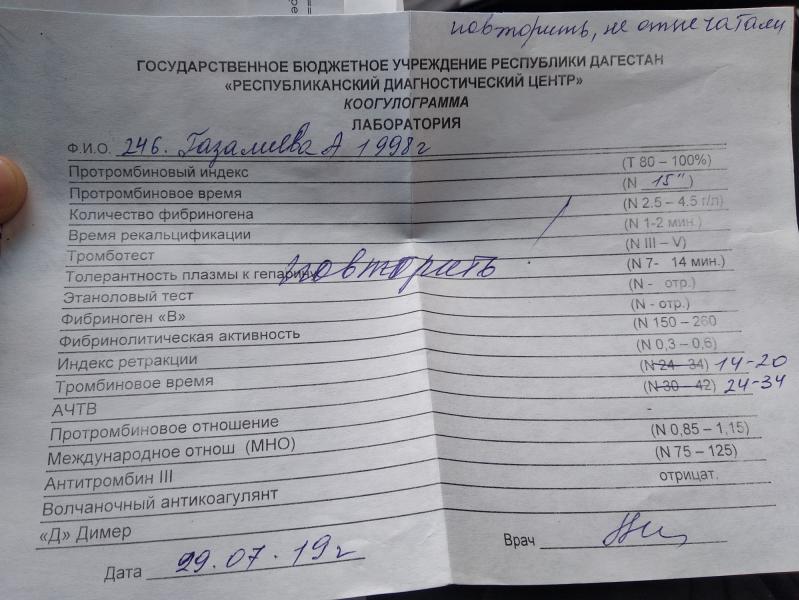 повторить, не отпечатали
ГОСУДАРСТВЕННОЕ БЮДЖЕТНОЕ УЧРЕЖДЕНИЕ РЕСПУБЛИКИ ДАГЕСТАН
«РЕСПУБЛИКАНСКИЙ ДИАГНОСТИЧЕСКИЙ ЦЕНТР»
КООГУЛОГРАММА
ЛАБОРАТОРИЯ
Ф.И.О. 246. Газалиева А 1998г
Протромбиновый индекс (Т 80 – 100%)
Протромбиновое время (N 15")
Количество фибриногена (N 2.5 – 4.5 г/л)
Время рекальцификации (N 1-2 мин.)
Тромботест (N III – V)
Толерантность плазмы к гепарину (N 7- 14 мин.)
повторить
Этаноловый тест (N - отр.)
Фибриноген «В» (N - отр.)
Фибринолитическая активность (N 150 – 260
Индекс ретракции (N 0,3 – 0,6)
Тромбиновое время (N 24 - 34) 14-20
АЧТВ (N 30 – 42) 24-34
Протромбиновое отношение -
Международное отнош (МНО) (N 0,85 – 1,15)
Антитромбин III (N 75 – 125)
Волчаночный антикоагулянт отрицат.
«Д» Димер
Дата 29.07.19г Врач